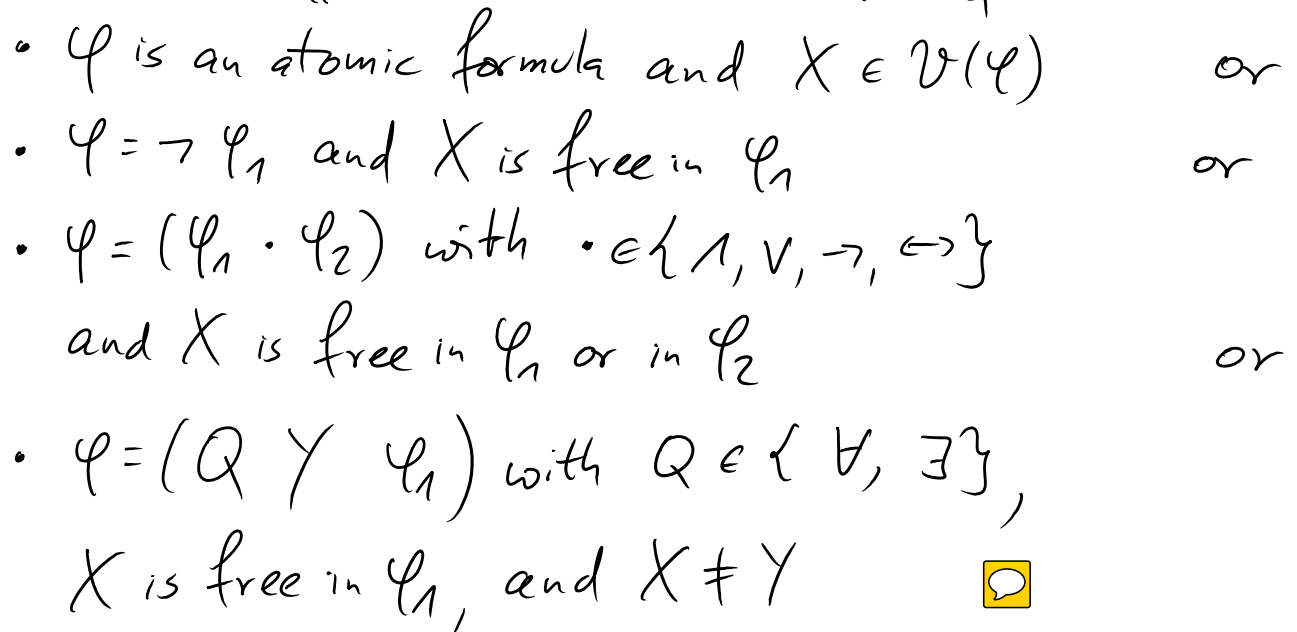 • φ is an atomic formula and X ∈ V(φ) or
• φ = ¬ φ₁ and X is free in φ₁ or
• φ = (φ₁ · φ₂) with · ∈ {∧, ∨, →, ↔}
and X is free in φ₁ or in φ₂ or
• φ = (Q Y φ₁) with Q ∈ {∀, ∃},
X is free in φ₁, and X ≠ Y